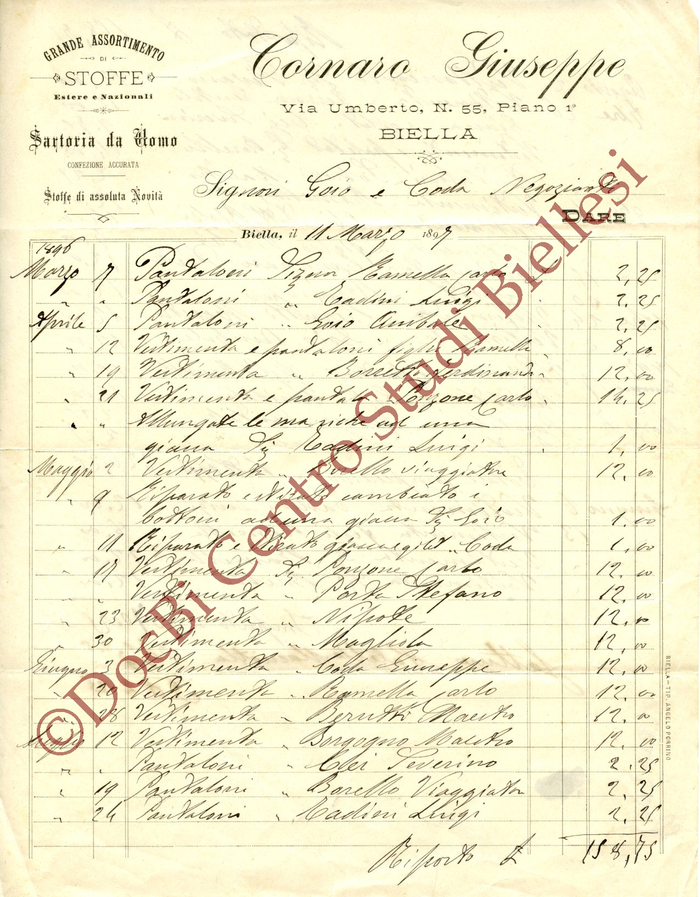 GRANDE ASSORTIMENTO
DI
STOFFE
Estere e Nazionali
Sartoria da Uomo
CONFEZIONE ACCURATA
Stoffe di assoluta Novità
Cornaro Giuseppe
Via Umberto, N. 55, Piano 1º
BIELLA
Signori Goio e Coda Negozianti
DARE
Biella, il 11 Marzo 1897
1896
Marzo 7 Pantaloni Sigra Ramella Carlo 2,25
" " Pantaloni " Cadini Luigi 2,25
Aprile 5 Pantaloni " Goio Anibale 2,25
" 12 Vestimenta e pantaloni figlio Ramella 8,00
" 19 Vestimenta " Ferdinando 12,00
" 21 Vestimenta e Carlo 14,25
" " Allungate le maniche ad una
giacca Sig Cadini Luigi 1,00
Maggio 2 Vestimenta " Viaggiatore 12,00
" 9 Riparato e cambiato i
bottoni ad una giacca Sig Goio 1,00
" 11 Riparato e giacca e gilet " Coda 1,00
" 17 Vestimenta Sig Carlo 12,00
" Vestimenta " Porta Stefano 12,00
" 23 Vestimenta " Nipote 12,00
30 Vestimenta " Magliola 12,00
Giugno 3 Vestimenta " Coda Giuseppe 12,00
" Vestimenta " Ramella Carlo 12,00
" 28 Vestimenta " Berutti Maestro 12,00
12 Vestimenta " Borgogno Maestro 12,00
" " Pantaloni " Cler Federino 2,25
" 19 Pantaloni " Borello Viaggiator 2,25
" 26 Pantaloni " Cadini Luigi 2,25
Riporto £ 158,75
BIELLA—TIP. ANGELO PERRINO
©DocBi Centro Studi Biellesi